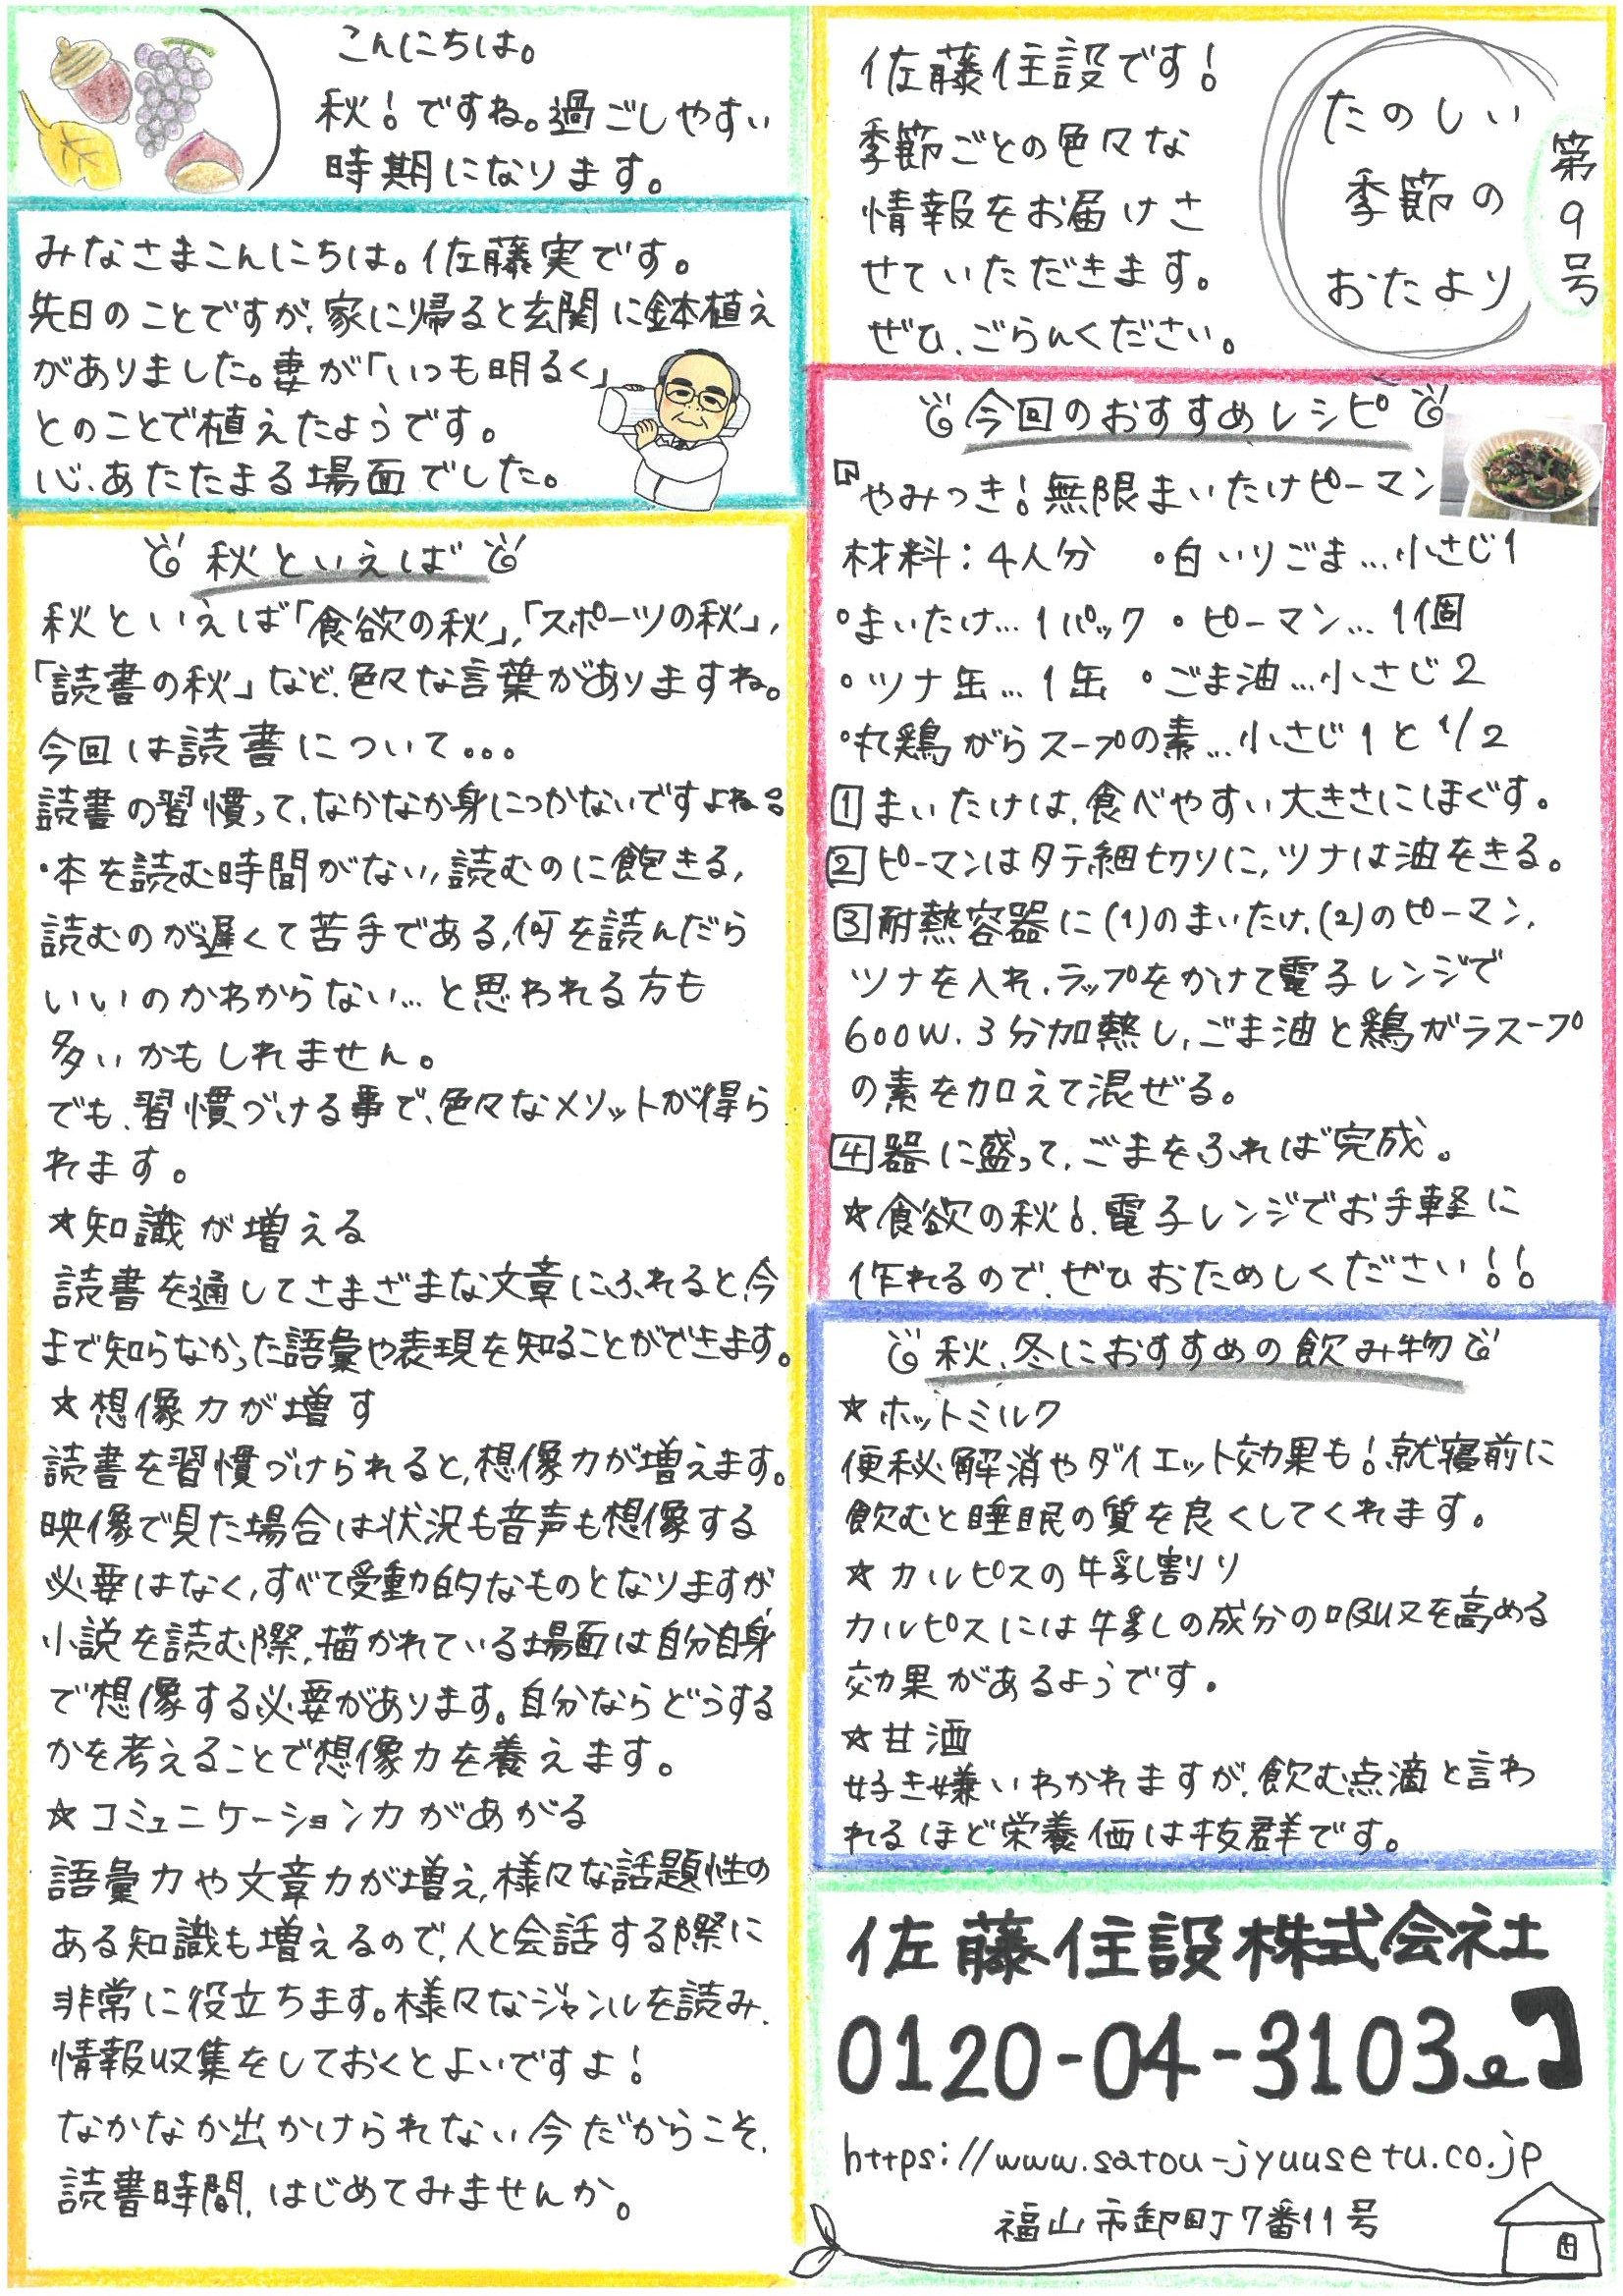 こんにちは。
秋!ですね。過ごしやすい
時期になります。
みなさまこんにちは。佐藤実です。
先日のことですが、家に帰ると玄関に鉢植え
がありました。妻が「いつも明るく」
とのことで植えたようです。
心、あたたまる場面でした。
秋といえば
秋といえば「食欲の秋」,「スポーツの秋」,
「読書の秋」など、色々な言葉がありますね。
今回は読書について。。。
読書の習慣って、なかなか身につかないですよね。
・本を読む時間がない,読むのに飽きる,
読むのが遅くて苦手である,何を読んだら
いいのかわからない…と思われる方も
多いかもしれません。
でも、習慣づける事で、色々なメリットが得ら
れます。
☆知識が増える
読書を通してさまざまな文章にふれると、今
まで知らなかった語彙や表現を知ることができます。
☆想像力が増す
読書を習慣づけられると,想像力が増えます。
映像で見た場合は状況も音声も想像する
必要はなく,すべて受動的なものとなりますが,
小説を読む際,描かれている場面は自分自身
で想像する必要があります。自分ならどうする
かを考えることで想像力を養えます。
☆コミュニケーション力があがる
語彙力や文章力が増え,様々な話題性の
ある知識も増えるので,人と会話する際に
非常に役立ちます。様々なジャンルを読み、
情報収集をしておくとよいですよ!
なかなか出かけられない今だからこそ、
読書時間、はじめてみませんか。
佐藤住設です!
季節ごとの色々な
情報をお届けさ
せていただきます。
ぜひ、ごらんください。
たのしい
季節の
おたより
第9号
今回のおすすめレシピ
『やみつき!無限まいたけピーマン
材料:4人分 •白いりごま…小さじ1
•まいたけ…1パック •ピーマン…1個
•ツナ缶…1缶 •ごま油…小さじ2
•丸鶏がらスープの素…小さじ1と1/2
1 まいたけは、食べやすい大きさにほぐす。
2 ピーマンはタテ細切りに,ツナは油をきる。
3 耐熱容器に(1)のまいたけ、(2)のピーマン、
ツナを入れ、ラップをかけて電子レンジで
600W、3分加熱し、ごま油と鶏ガラスープ
の素を加えて混ぜる。
4 器に盛って、ごまをふれば完成。
☆食欲の秋!、電子レンジでお手軽に
作れるので、ぜひおためしください!!
秋、冬におすすめの飲み物
☆ホットミルク
便秘解消やダイエット効果も!就寝前に
飲むと睡眠の質を良くしてくれます。
☆カルピスの牛乳割り
カルピスには牛乳の成分の吸収を高める
効果があるようです。
☆甘酒
好き嫌いわかれますが、飲む点滴と言わ
れるほど栄養価は抜群です。
佐藤住設株式会社
0120-04-3103
https://www.satou-jyuusetu.co.jp
福山市卸町7番11号